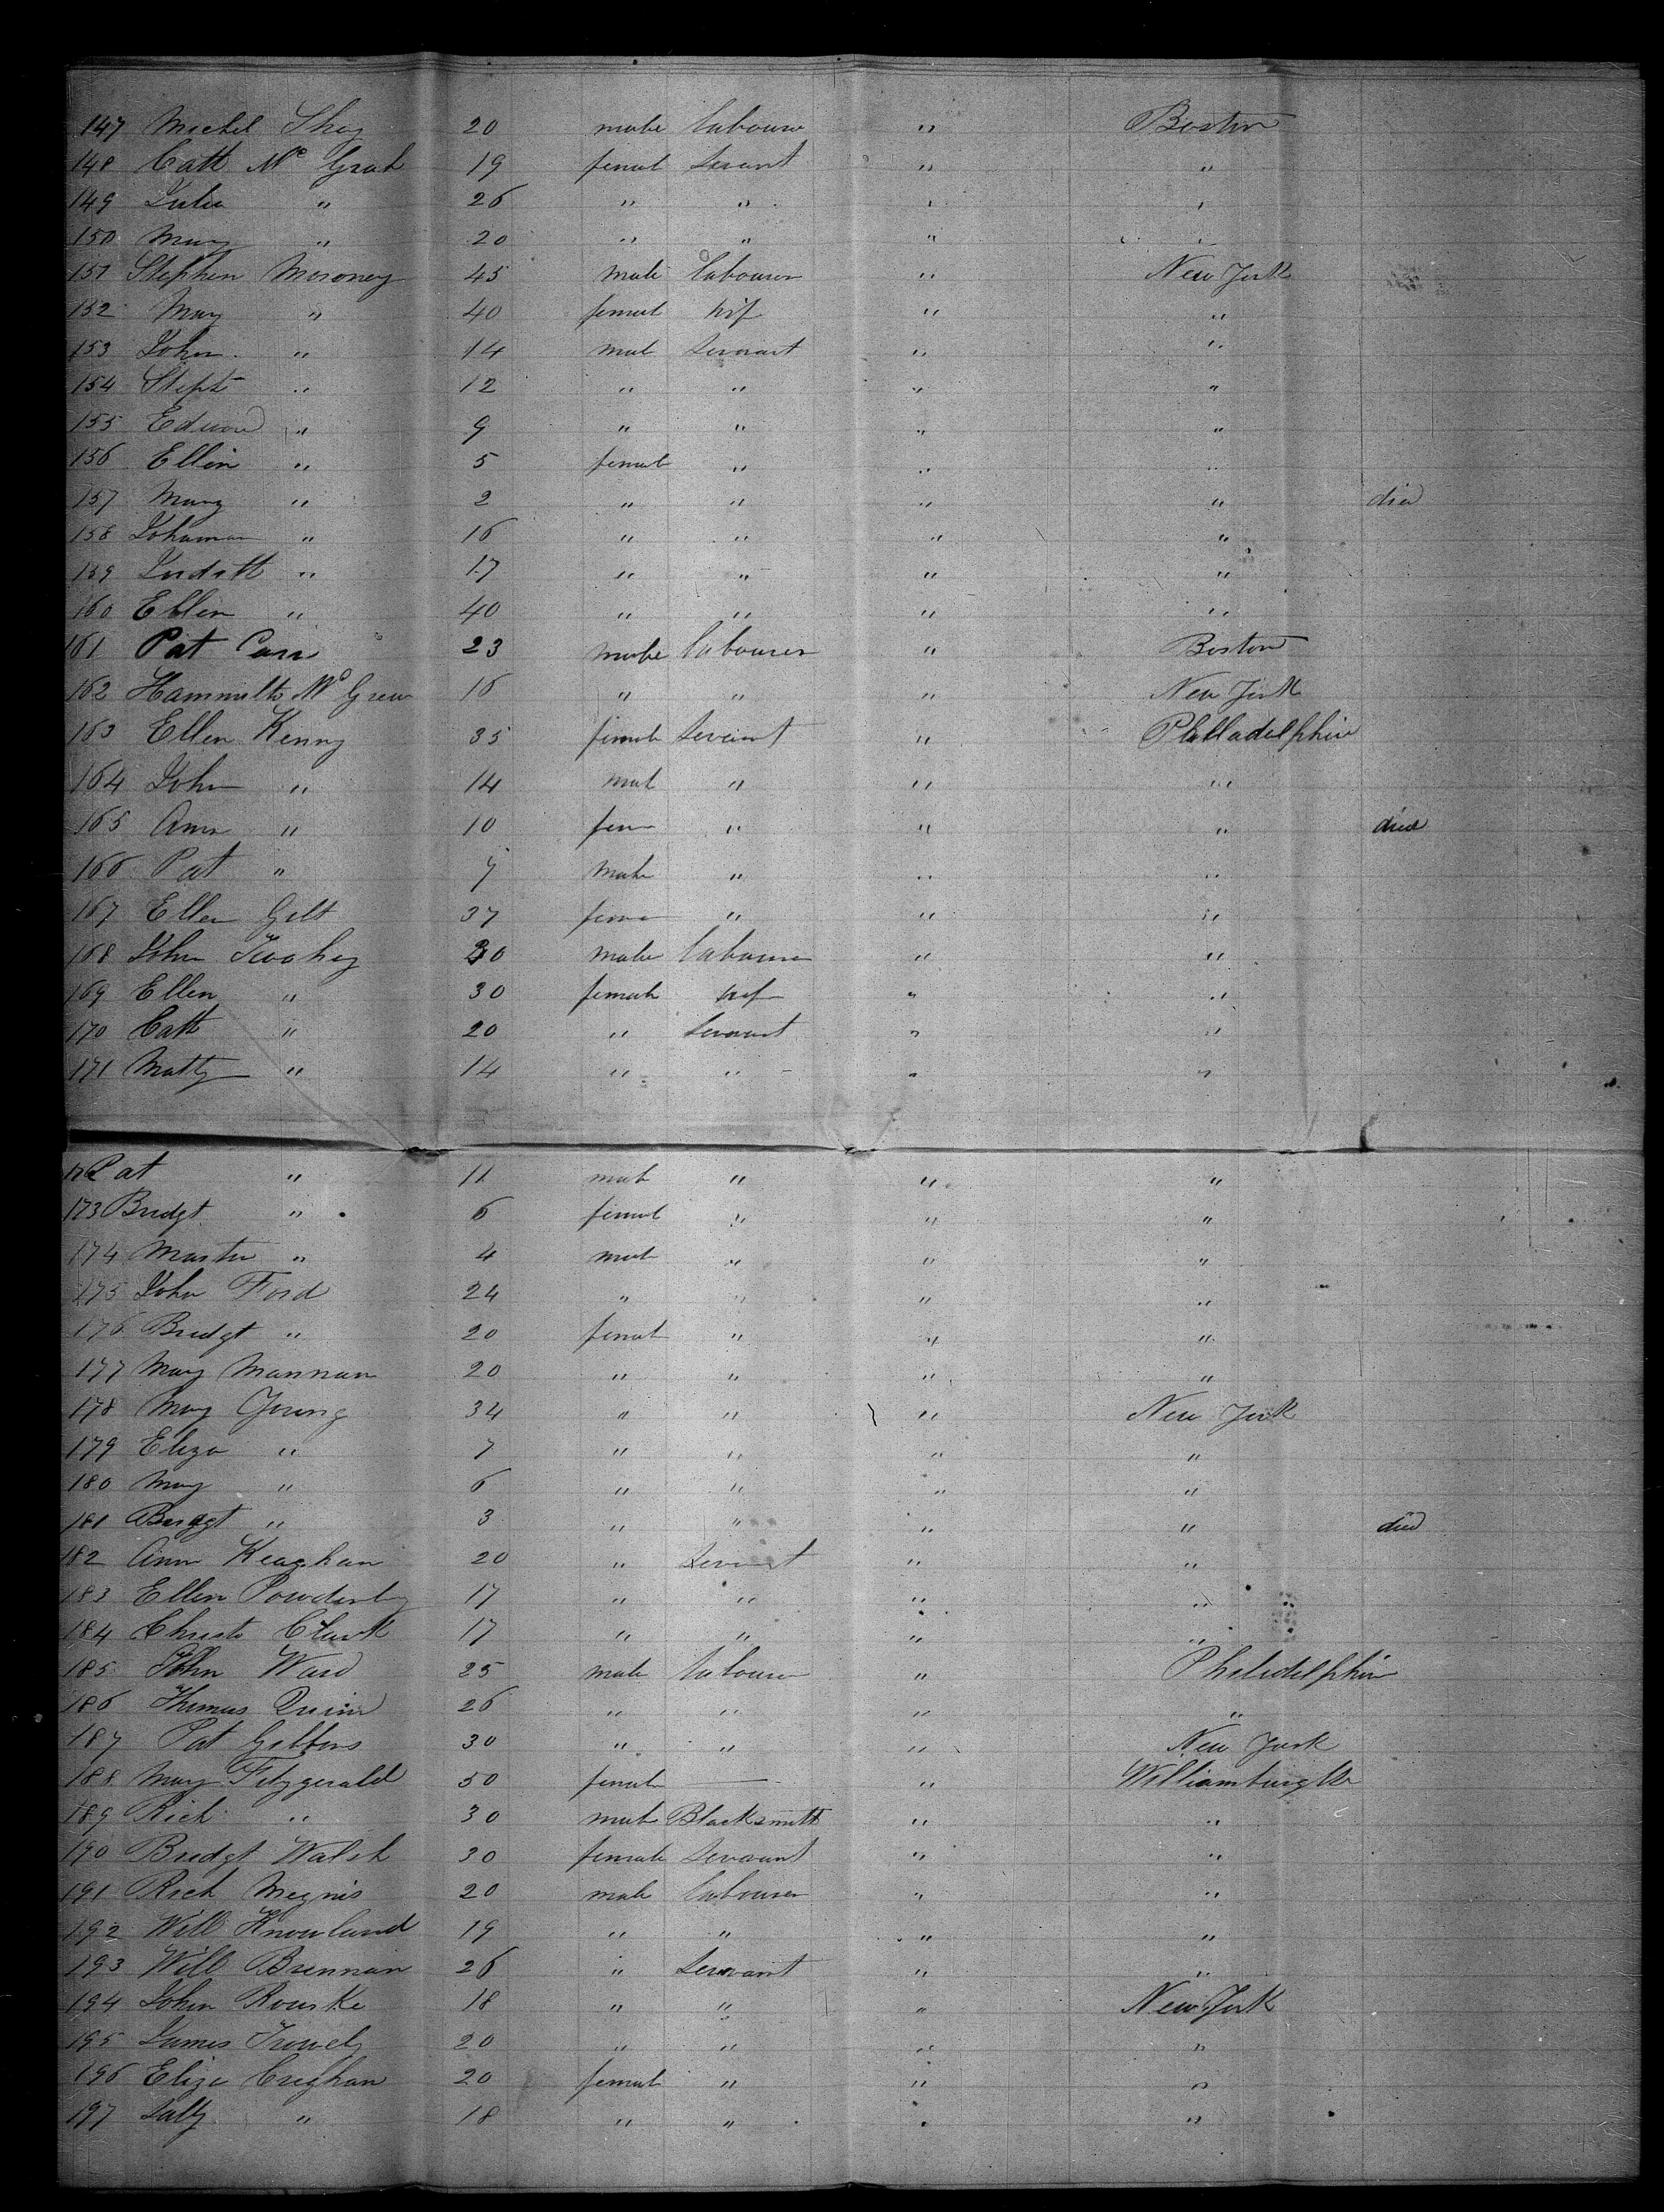 147 Michel Shay 20 male labourer " Boston
148 Cath Mc Grah 19 femal servant " "
149 Julia " 26 " " " "
150 Mary " 20 " " " "
151 Stephen Moroney 45 male labourer " New York
152 Mary " 40 femal wif " "
153 John " 14 mal servant " "
154 Steph " 12 " " " "
155 Edward " 9 " " " "
156 Ellen " 5 femal " " "
157 Mary " 2 " " " " died
158 Johanna " 16 " " " "
159 " 17 " " " "
160 Ellen " 40 " " " "
161 Pat Carr 23 male labourer " Boston
162 Hammilt Mc Grew 16 " " " New York
163 Ellen Kenny 35 female servant " Philladelphia
164 John " 14 mal " " "
165 Ann " 10 fem " " " died
166 Pat " 7 male " " "
167 Ellen Gilt 37 fema " " "
168 John Toohey 30 male labourer " "
169 Ellen " 30 female wif " "
170 Cath " 20 " servant " "
171 Matty " 14 " " " "
172 Pat " 11 mal " " "
173 Bridgt " 6 femal " " "
174 Martin " 4 mal " " "
175 John Ford 24 " " " "
176 Bridgt " 20 femal " " "
177 Mary Mannan 20 " " " "
178 Mary Young 34 " " " New York
179 Eliza " 7 " " " "
180 Mary " 6 " " " "
181 Bridgt " 3 " " " " died
182 Ann Keaghan 20 " servant " "
183 Ellen Powderly 17 " " " "
184 Christ Clark 17 " " " "
185 John Ward 25 male labourer " Philadelphia
186 Thomas Quinn 26 " " " "
187 Pat Gibbons 30 " " " New York
188 Mary Fitzgerald 50 female — " Williamburgh
189 Rich " 30 male Blacksmith " "
190 Bridgt Walsh 30 female servant " "
191 Rich Meginis 20 male labourer " "
192 Will Knowland 19 " " " "
193 Will Brennan 26 " servant " "
194 John Rourke 18 " " " New York
195 James 20 " " " "
196 Eliza Creghan 20 femal " " "
197 Sally " 18 " " " "